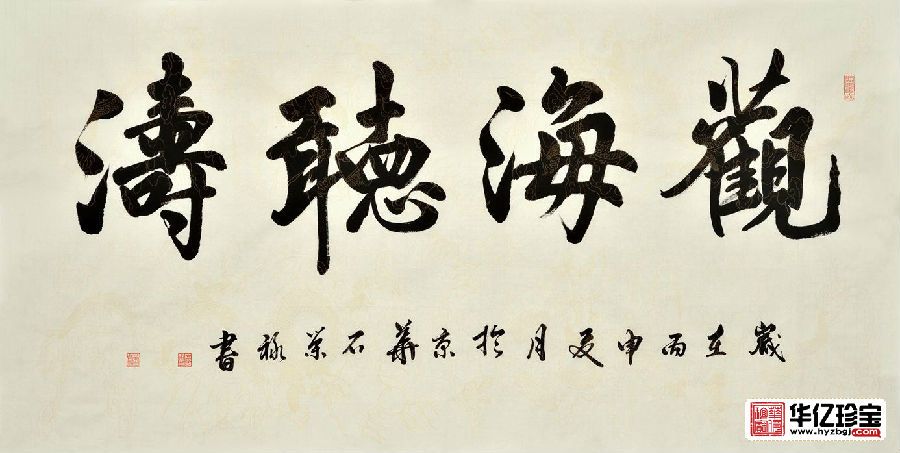 觀海聽濤
歲在丙申夏月於京華石榮祿書
华亿珍宝
www.hyzbgj.com